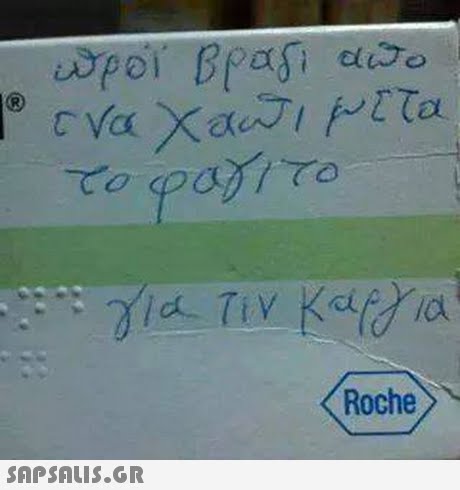 προϊ βραδι απο
® ενα χαπι μετα
το φαγιτο
για τιν καργια
Roche
SAPSALIS.GR